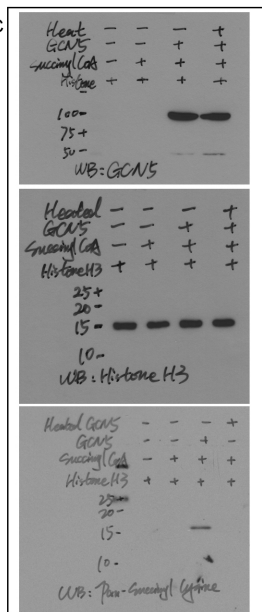 C
Heat - - - +
GCN5 - - + +
Succinyl CoA - + + +
Histone + + + +
100-
75+
50-
WB: GCN5
Heated - - - +
GCN5 - - + +
Succinyl CoA - + + +
Histone H3 + + + +
25+
20-
15-
10-
WB: Histone H3
Heated GCN5 - - - +
GCN5 - - + -
Succinyl CoA - + + +
Histone H3 + + + +
25-
20-
15-
10-
WB: Pan-Succinyl lysine